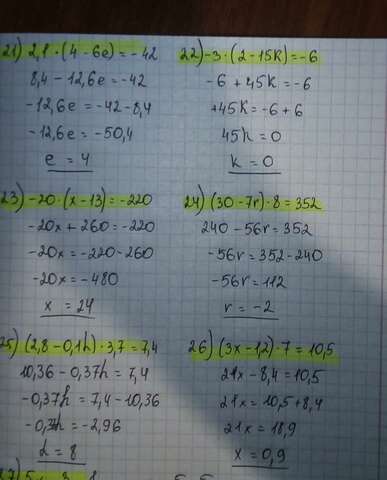 21) 2,1·(4-6e)=-42
8,4-12,6e=-42
-12,6e=-42-8,4
-12,6e=-50,4
e=4
22) -3·(2-15k)=-6
-6+45k=-6
+45k=-6+6
45k=0
k=0
23) -20·(x-13)=-220
-20x+260=-220
-20x=-220-260
-20x=-480
x=24
24) (30-7r)·8=352
240-56r=352
-56r=352-240
-56r=112
r=-2
25) (2,8-0,1h)·3,7=7,4
10,36-0,37h=7,4
-0,37h=7,4-10,36
-0,37h=-2,96
h=8
26) (3x-1,2)·7=10,5
21x-8,4=10,5
21x=10,5+8,4
21x=18,9
x=0,9